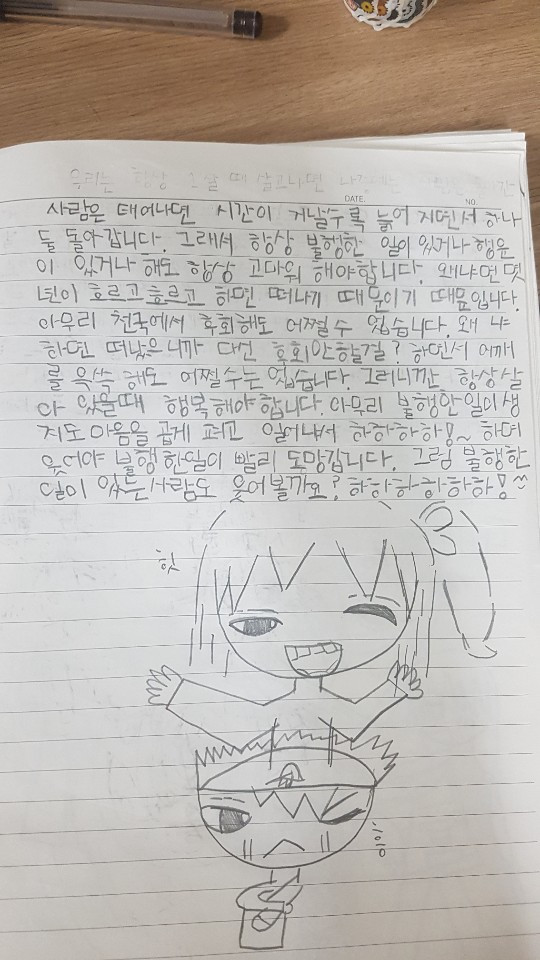 우리는 항상 그럴 때 살고나면
DATE. NO.
사람은 태어나면 시간이 지날수록 늙어 지면서 하나
둘 돌아갑니다. 그래서 항상 불행한 일이 있거나 행운
이 있거나 해도 항상 고마워 해야합니다. 왜냐면 몇
년이 흐르고 흐르고 하면 떠나기 때문이기 때문입니다.
아무리 천국에서 후회해도 어쩔수 없습니다. 왜 냐
하면 떠났으니까 다신 후회안할걸? 하면서 어깨
를 윽쓱 해도 어쩔수는 없습니다. 그러니깐 항상 살
아 있을때 행복해야 합니다. 아무리 불행한일이생
겨도 마음을 곱게 펴고 일어나서 하하하하!~ 하며
웃어야 불행한일이 빨리 도망갑니다. 그럼 불행한
일이 있는사람도 웃어볼까요? 하하하하하하!~
힛
흥